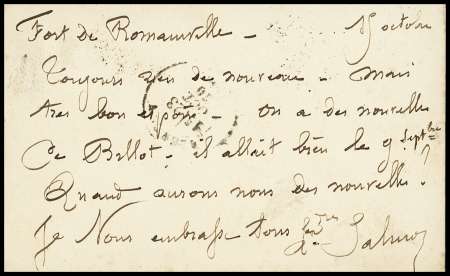 Fort de Romainville - 15 octobre
Toujours rien de nouveau - mais
très bon espoir - On a des nouvelles
De Billot - il allait bien le 9 Septbre
Quand aurons nous des nouvelles?
Je Vous embrasse tous